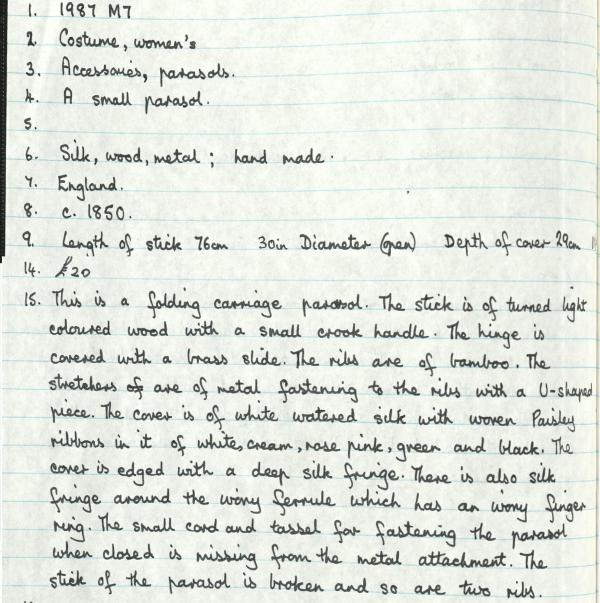 1. 1987 M7
2. Costume, women's
3. Accessories, parasols.
4. A small parasol.
5.
6. Silk, wood, metal ; hand made.
7. England.
8. c. 1850.
9. Length of stick 76cm 30in Diameter (open) Depth of cover 29cm
14. £20
15. This is a folding carriage parasol. The stick is of turned light
coloured wood with a small crook handle. The hinge is
covered with a brass slide. The ribs are of bamboo. The
stretchers of are of metal fastening to the ribs with a U-shaped
piece. The cover is of white watered silk with woven Paisley
ribbons in it of white, cream, rose pink, green and black. The
cover is edged with a deep silk fringe. There is also silk
fringe around the ivory ferrule which has an ivory finger
ring. The small cord and tassel for fastening the parasol
when closed is missing from the metal attachment. The
stick of the parasol is broken and so are two ribs.